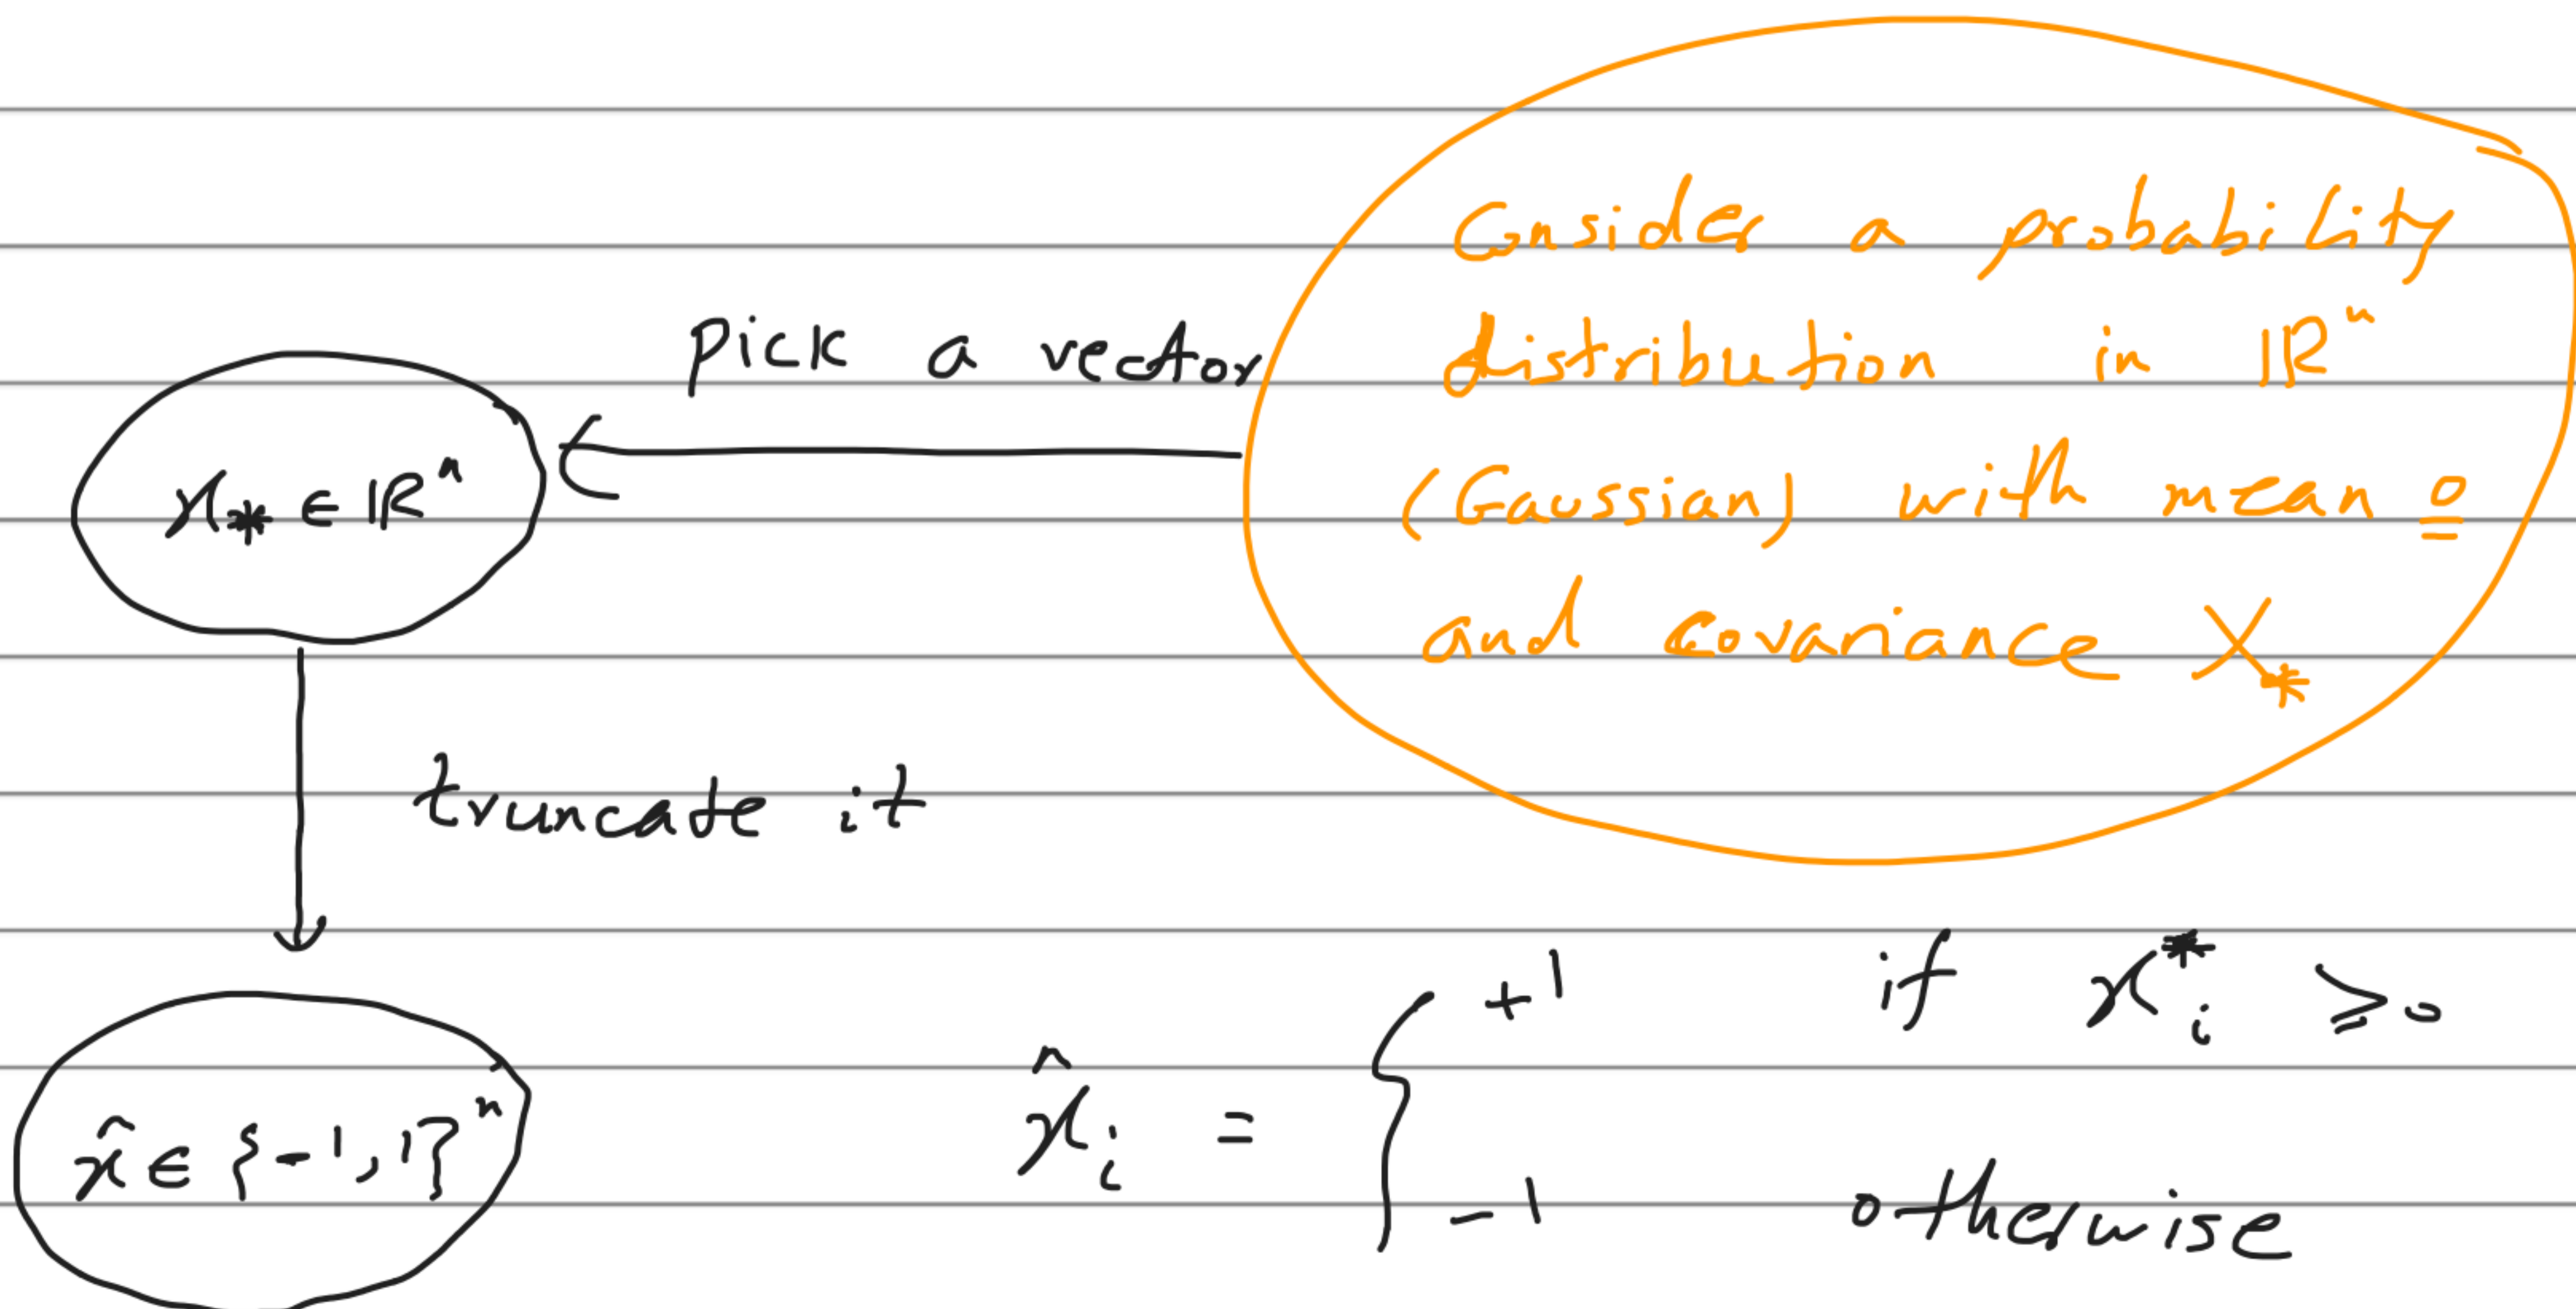 Consider a probability
distribution in ℝⁿ
(Gaussian) with mean 0
and covariance X_*
Pick a vector
x_* ∈ ℝⁿ
truncate it
x̂ ∈ {-1, 1}ⁿ
x̂_i = { +1 if x_i^* ⩾ 0
-1 otherwise